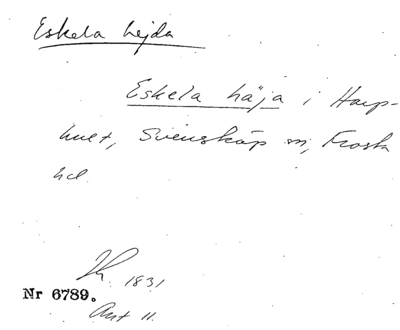 Eskela hejda
Eskela häja i Harp-
hult, Svensköp sn, Frosta
hd.
1831
Nr 6789.
Akt 11.